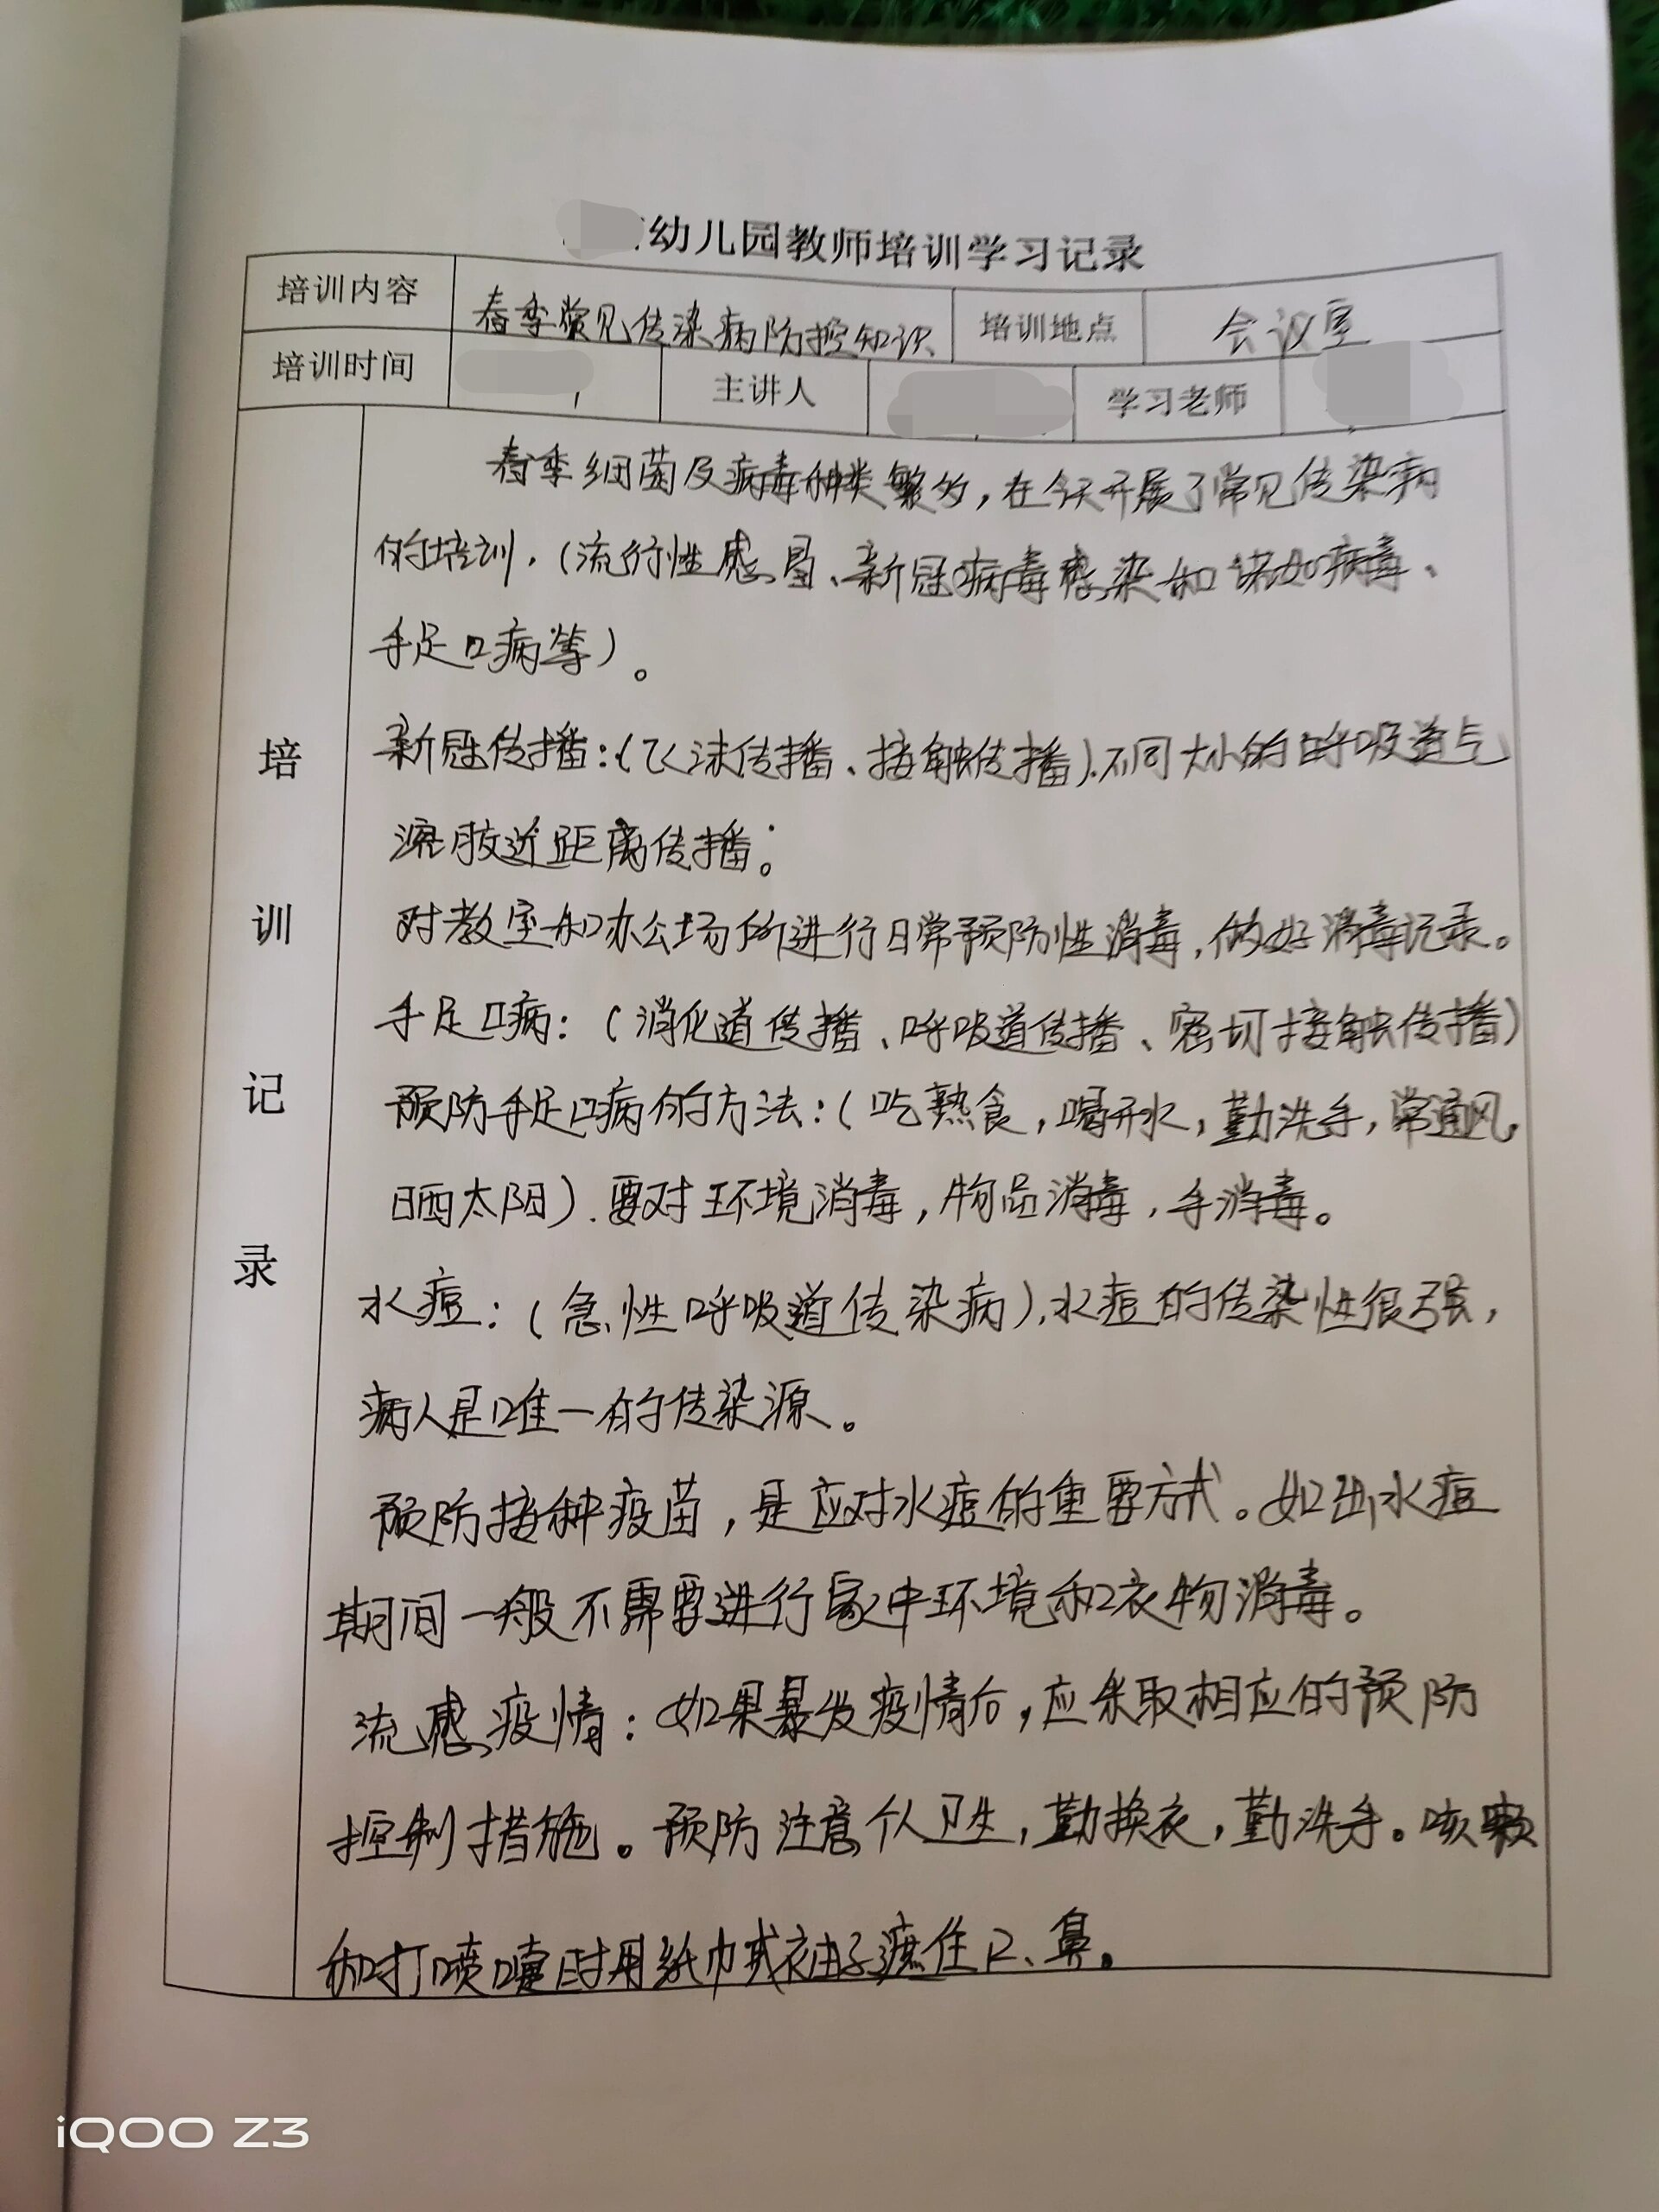 幼儿园教师培训学习记录
培训内容 春季常见传染病防控知识 培训地点 会议室
培训时间 主讲人 学习老师
培训记录
春季细菌及病毒种类繁多,在今天开展了常见传染病
的培训.(流行性感冒、新冠病毒感染和诺如病毒、
手足口病等)。
新冠传播:(飞沫传播、接触传播).不同大小的呼吸道气
溶胶近距离传播。
对教室和办公场所进行日常预防性消毒,做好消毒记录。
手足口病:(消化道传播、呼吸道传播、密切接触传播)
预防手足口病的方法:(吃熟食,喝开水,勤洗手,常通风,
晒太阳).要对环境消毒,物品消毒,手消毒。
水痘:(急性呼吸道传染病),水痘的传染性很强,
病人是唯一的传染源。
预防接种疫苗,是应对水痘的重要方式。如出水痘
期间一般不需要进行家中环境和衣物消毒。
流感疫情:如果暴发疫情后,应采取相应的预防
控制措施。预防注意个人卫生,勤换衣,勤洗手。咳嗽
和打喷嚏时用纸巾或衣袖子遮住口、鼻。
iQOO Z3